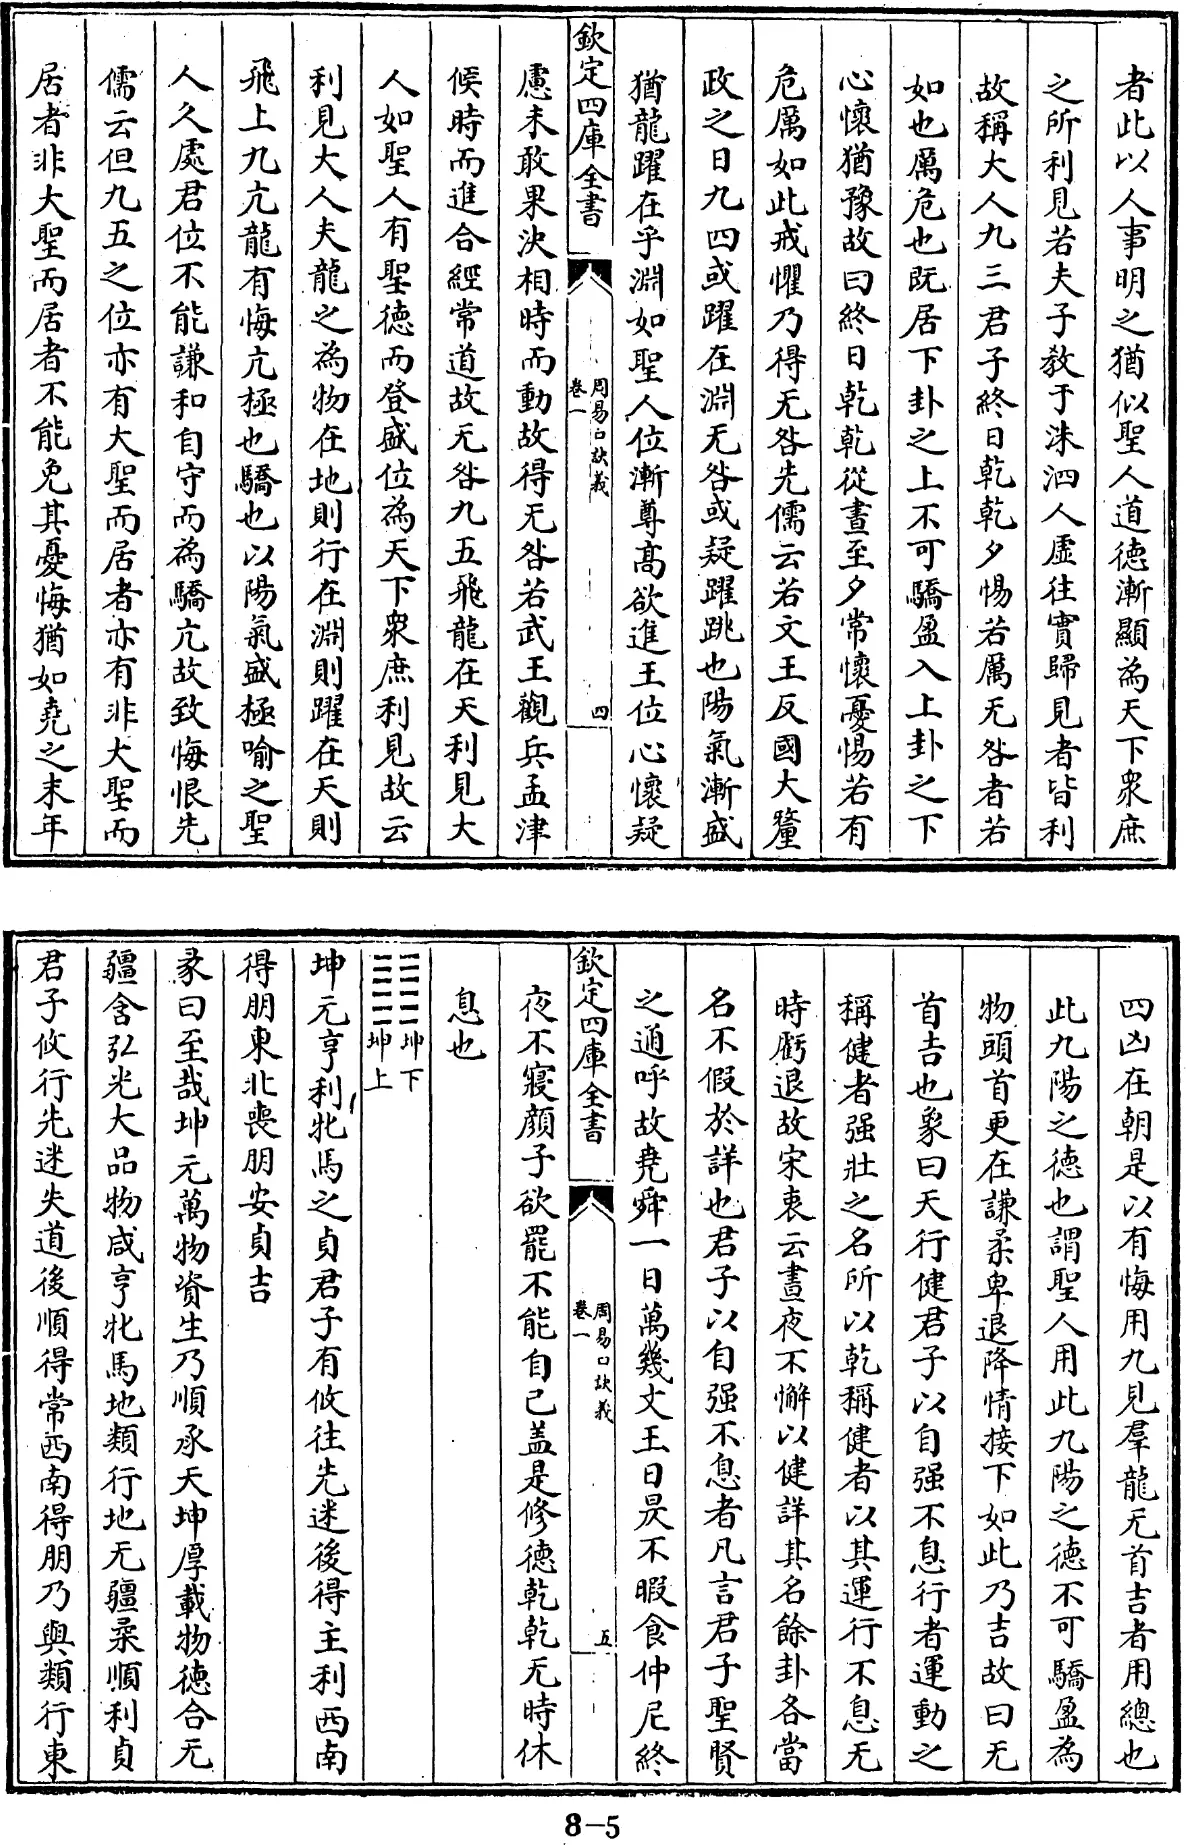 者此以人事明之猶似聖人道德漸顯為天下衆庶
之所利見若夫子教于洙泗人虛往實歸見者皆利
故稱大人九三君子終日乾乾夕惕若厲无咎者若
如也厲危也既居下卦之上不可驕盈入上卦之下
心懷猶豫故曰終日乾乾從晝至夕常懷憂惕若有
危厲如此戒懼乃得无咎先儒云若文王反國大釐
政之日九四或躍在淵无咎或疑躍跳也陽氣漸盛
猶龍躍在乎淵如聖人位漸尊高欲進王位心懷疑
欽定四庫全書
周易口訣義
卷一
四
慮未敢果決相時而動故得无咎若武王觀兵孟津
候時而進合經常道故无咎九五飛龍在天利見大
人如聖人有聖德而登盛位為天下衆庶利見故云
利見大人夫龍之為物在地則行在淵則躍在天則
飛上九亢龍有悔亢極也驕也以陽氣盛極喻之聖
人久處君位不能謙和自守而為驕亢故致悔恨先
儒云但九五之位亦有大聖而居者亦有非大聖而
居者非大聖而居者不能免其憂悔猶如堯之末年
四凶在朝是以有悔用九見羣龍无首吉者用總也
此九陽之德也謂聖人用此九陽之德不可驕盈為
物頭首更在謙柔卑退降情接下如此乃吉故曰无
首吉也象曰天行健君子以自强不息行者運動之
稱健者强壯之名所以乾稱健者以其運行不息无
時虧退故宋衷云晝夜不懈以健詳其名餘卦各當
名不假於詳也君子以自强不息者凡言君子聖賢
之通呼故堯舜一日萬幾文王日昃不暇食仲尼終
欽定四庫全書
周易口訣義
卷一
五
夜不寢顔子欲罷不能自已盖是修德乾乾无時休
息也
䷁坤下坤上
坤元亨利牝馬之貞君子有攸往先迷後得主利西南
得朋東北喪朋安貞吉
彖曰至哉坤元萬物資生乃順承天坤厚載物德合无
疆含弘光大品物咸亨牝馬地類行地无疆柔順利貞
君子攸行先迷失道後順得常西南得朋乃與類行東
8-5